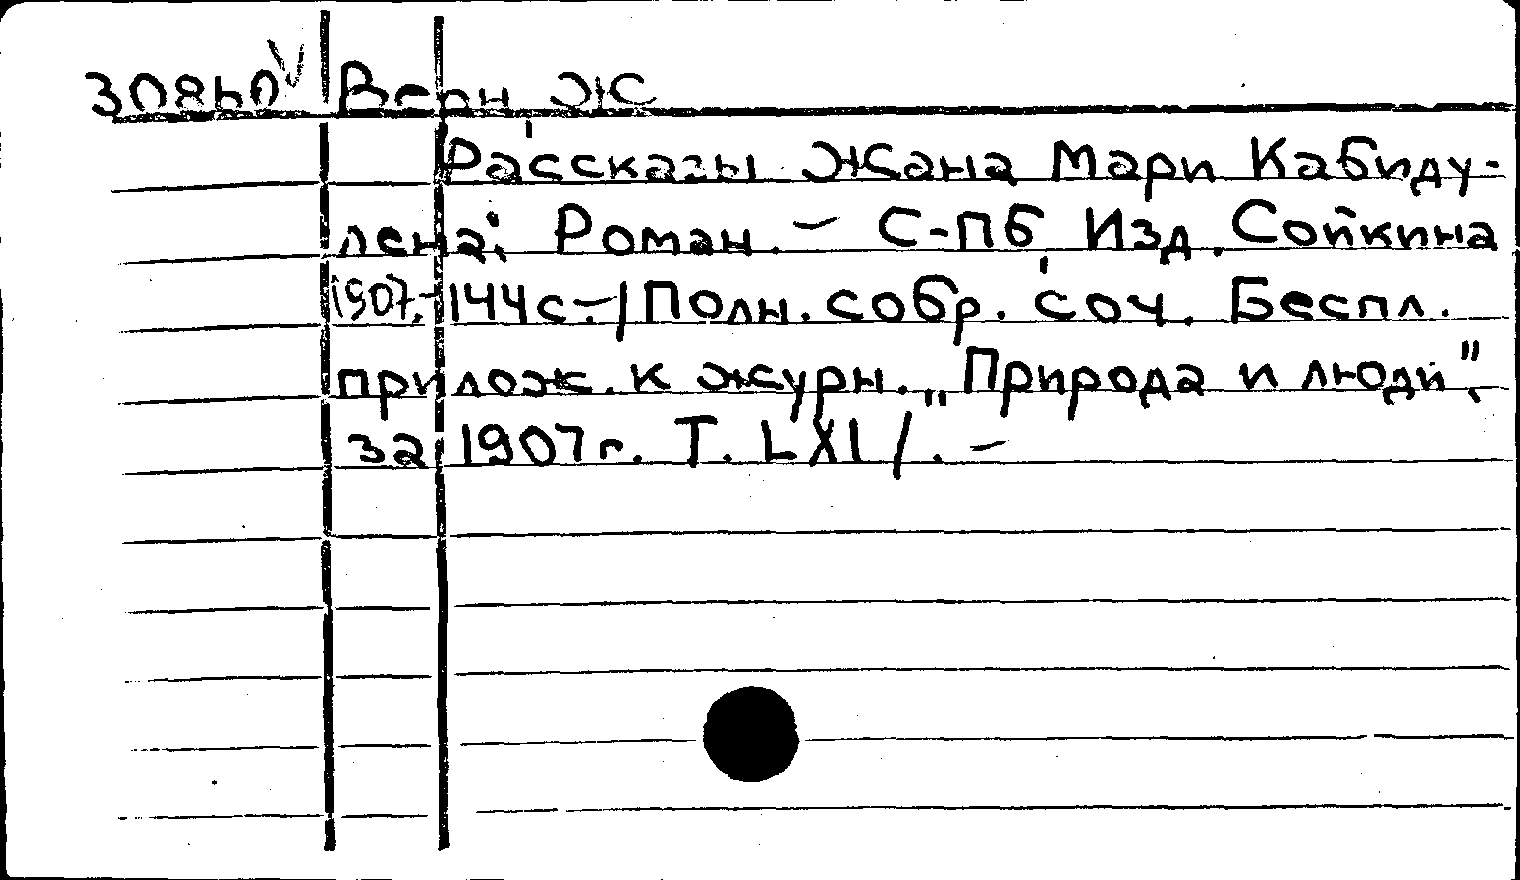 30860 V Верн Ж
Рассказы Жана Мари Кабиду-
лена: Роман. - С-Пб Изд. Сойкина
1907. - 144 с. - / Полн. собр. соч. Беспл.
прилож. к журн. „Природа и люди".
за 1907 г. Т. LXI /. -